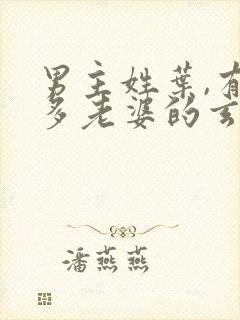 男主姓葉,有
多老婆的玄
潘燕燕